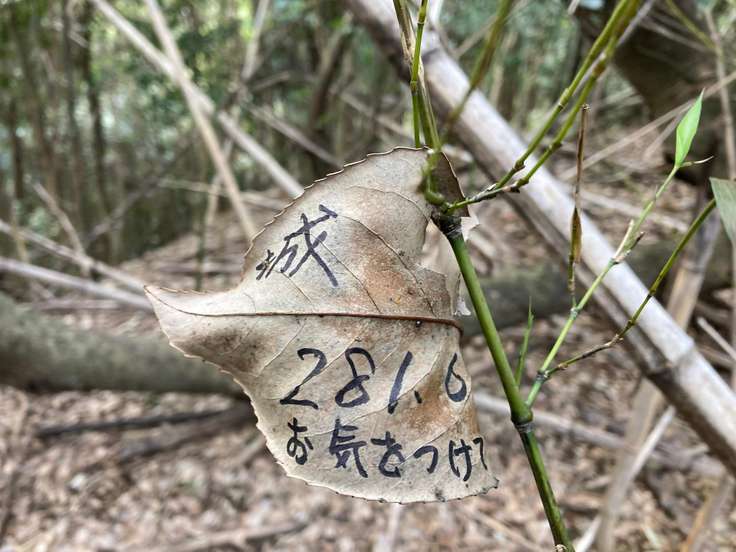 城
281.6
お気をつけて